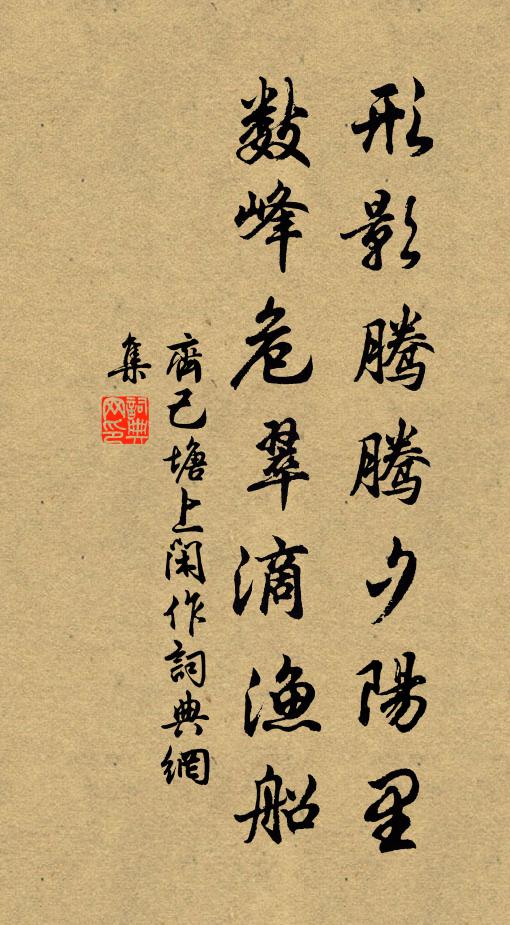 形影騰騰夕陽里
數峰危翠滴漁船
齊己塘上閑作詞典網
集
詞典
网印